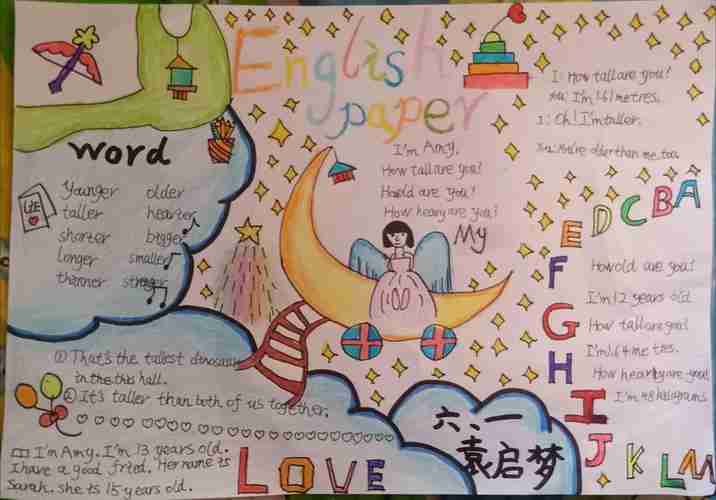 English
paper
I: How tall are you?
I'm 1.61 metres.
I: Oh! I'm taller.
You're older than me, too.
word
younger older
taller heavier
shorter bigger
longer smaller
thinner stronger
I'm Amy.
How tall are you?
How old are you?
How heavy are you?
My
A
B
C
D
E
F
G
H
I
J
K
L
M
How old are you?
I'm 12 years old
How tall are you?
I'm 1.64 metres.
How heavy are you?
I'm 48 kilograms.
① That's the tallest dinosaur
in the this hall.
② It's taller than both of us together.
I'm Amy. I'm 13 years old.
I have a good fried. Her name is
Sarah. she is 15 years old.
LOVE
六、一
袁启梦